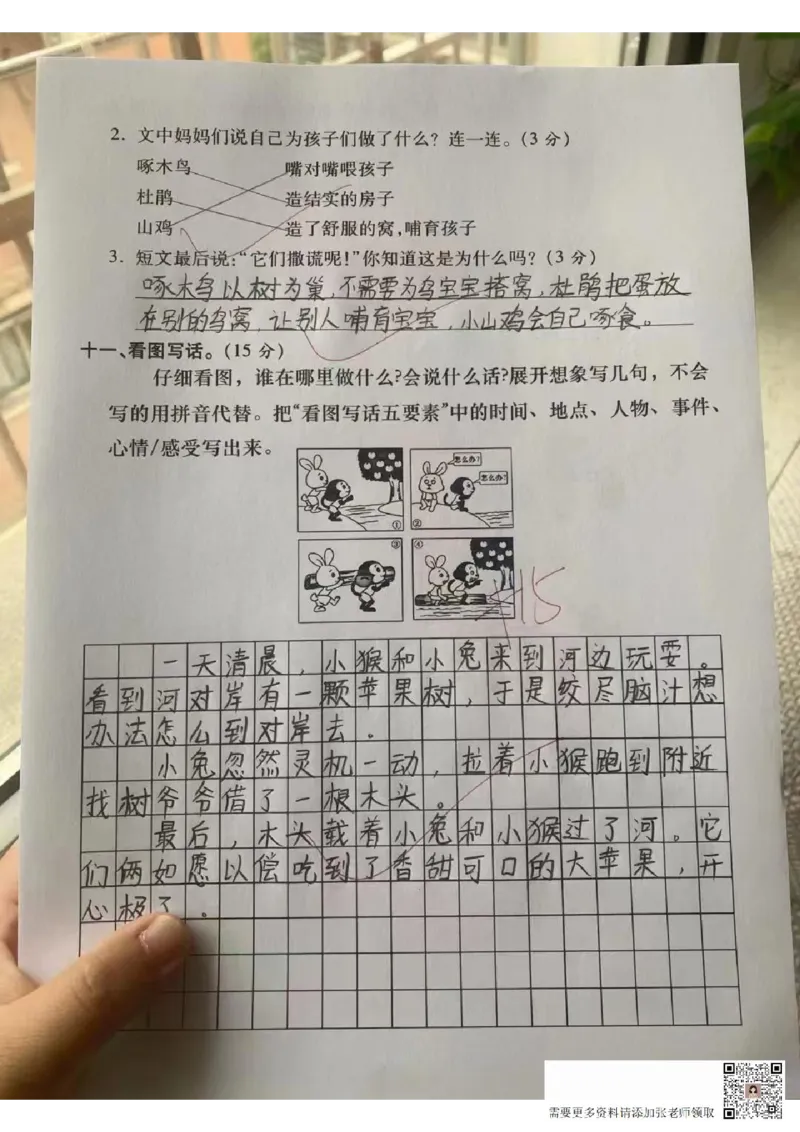 2. 文中妈妈们说自己为孩子们做了什么？连一连。(3 分)
啄木鸟 嘴对嘴喂孩子
杜鹃 造结实的房子
山鸡 造了舒服的窝,哺育孩子
3. 短文最后说:“它们撒谎呢!”你知道这是为什么吗？(3 分)
啄木鸟以树为巢,不需要为鸟宝宝搭窝,杜鹃把蛋放
在别的鸟窝,让别人哺育宝宝,小山鸡会自己啄食。
十一、看图写话。(15 分)
仔细看图，谁在哪里做什么?会说什么话?展开想象写几句，不会
写的用拼音代替。把“看图写话五要素”中的时间、地点、人物、事件、
心情/感受写出来。
怎么办?
怎么办?
①
②
③
④
15
一天清晨，小猴和小兔来到河边玩耍。
看到河对岸有一颗苹果树，于是绞尽脑汁想
办法怎么到对岸去。
小兔忽然灵机一动，拉着小猴跑到附近
找树爷爷借了一根木头。
最后，木头载着小兔和小猴过了河。它
们俩如愿以偿吃到了香甜可口的大苹果，开
心极了。
需要更多资料请添加张老师领取